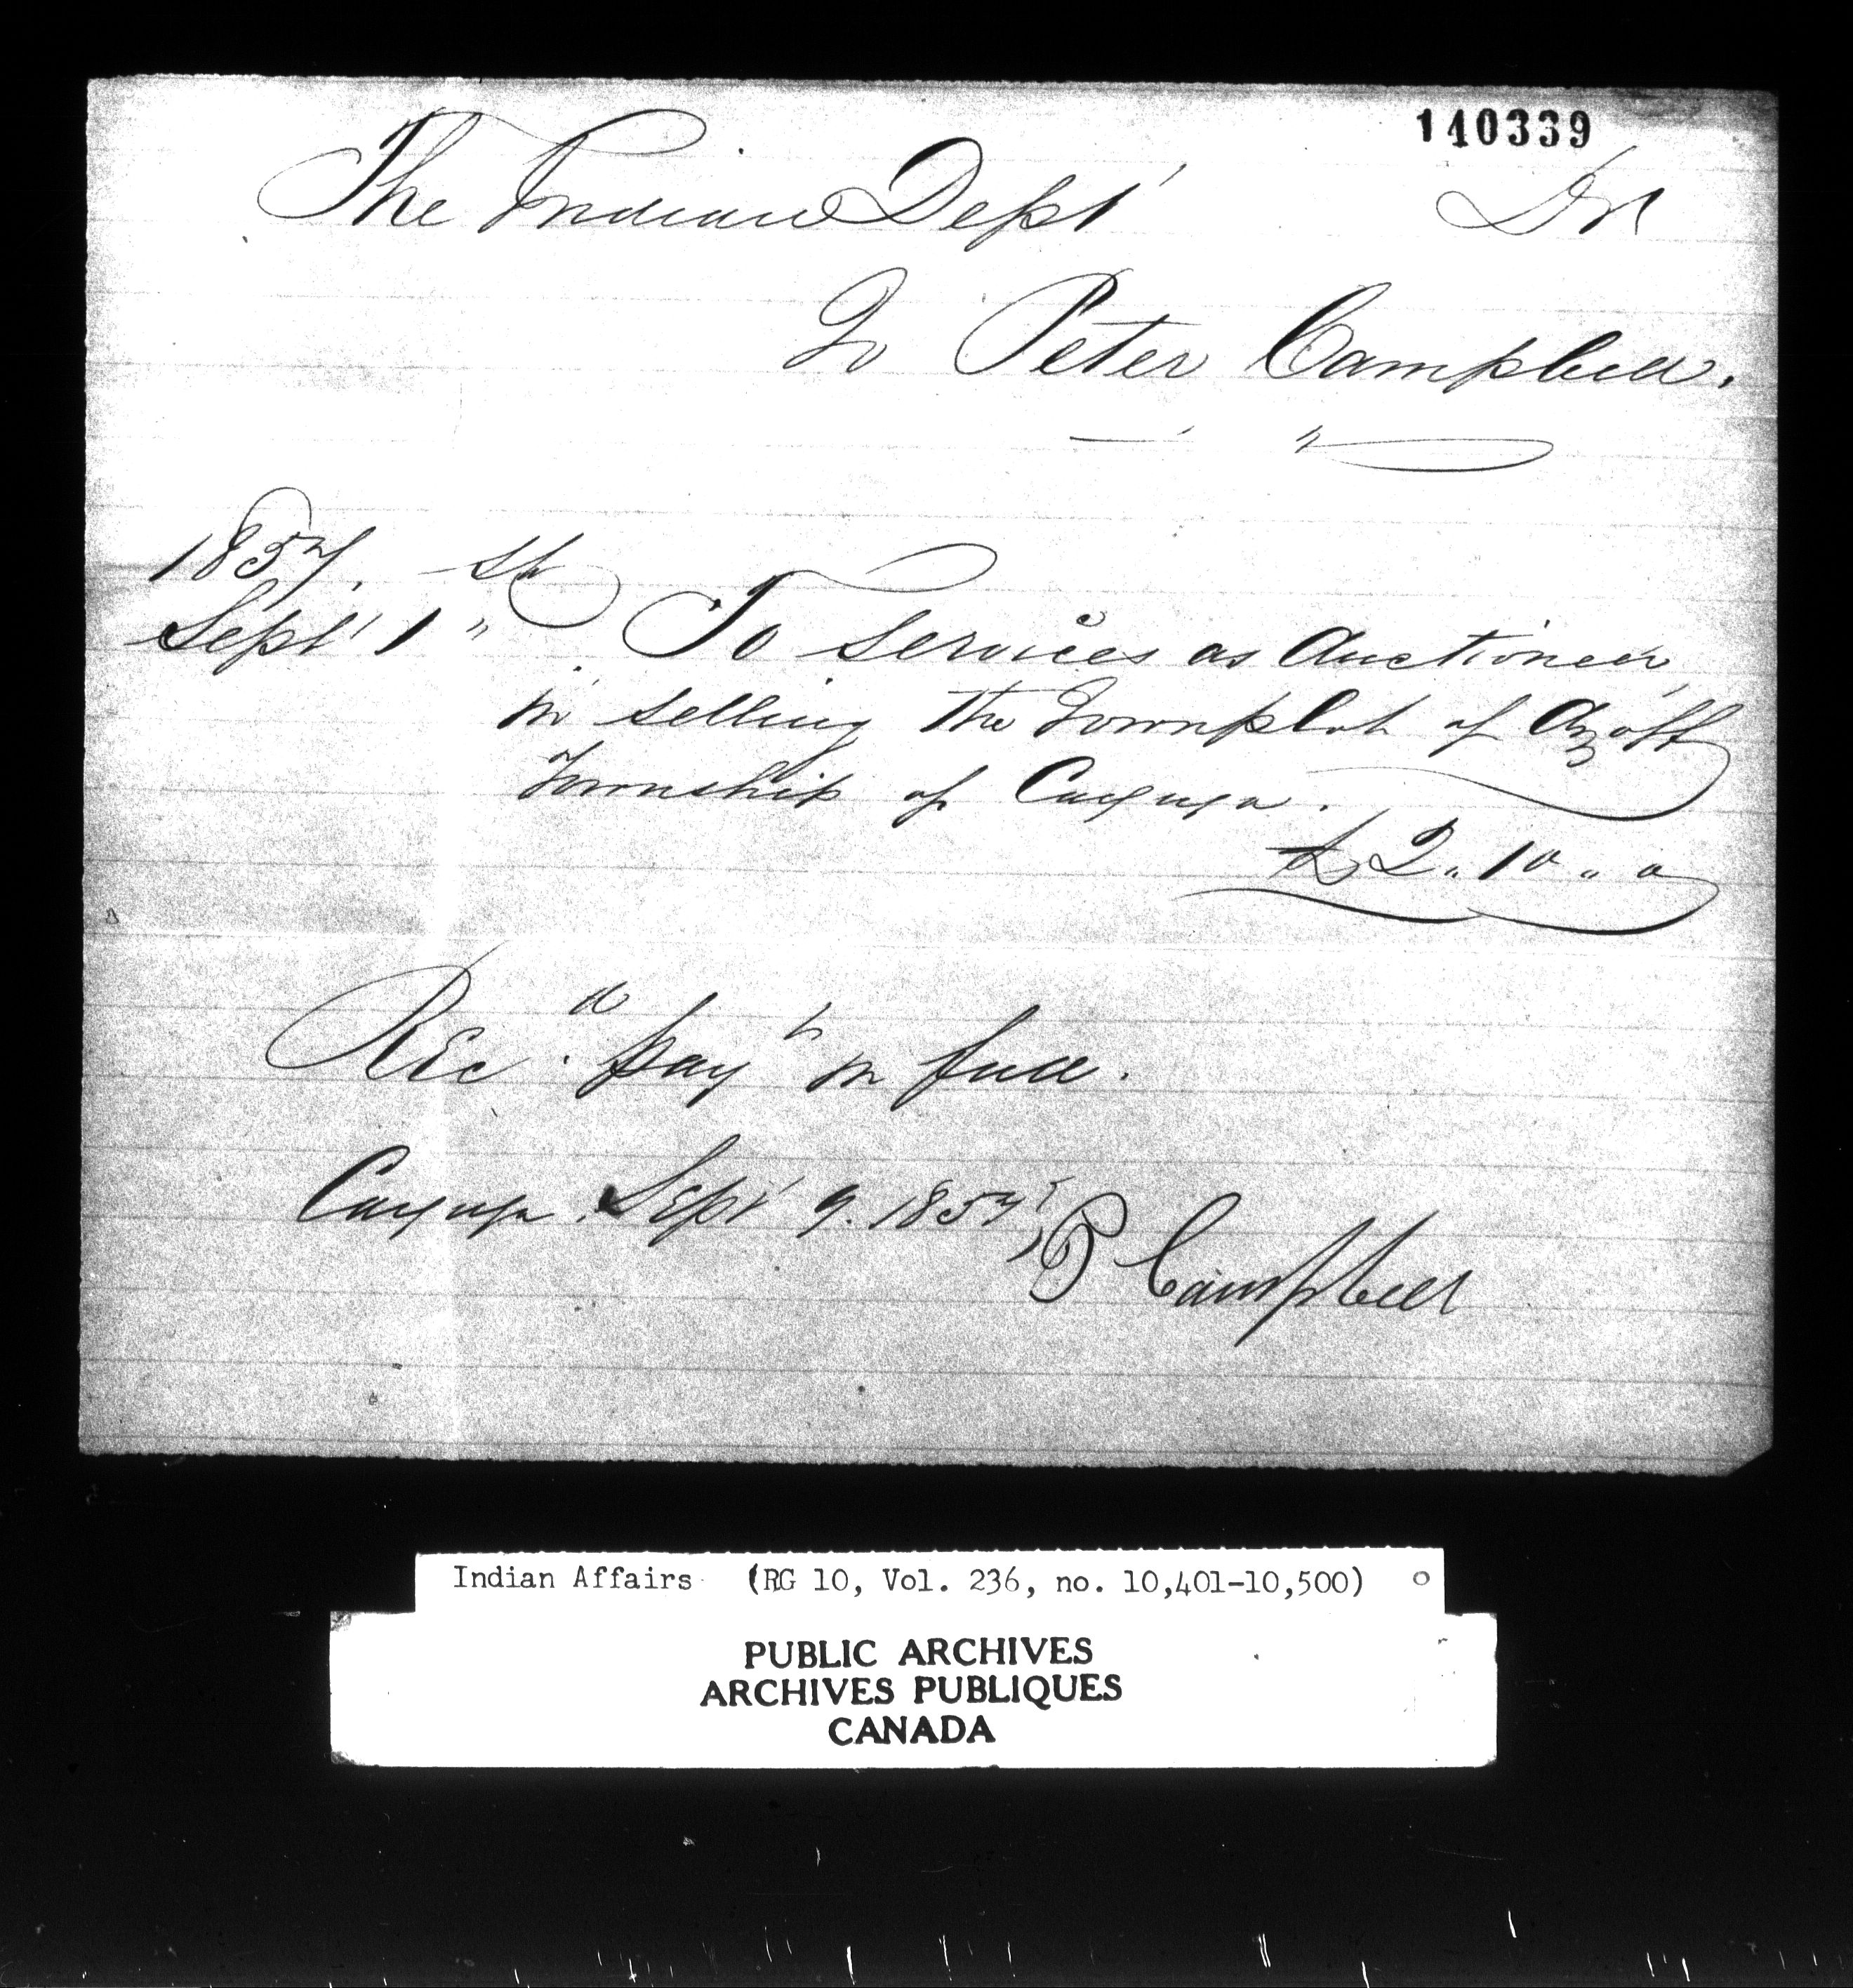 140339
The Indian Dept Dr
To Peter Campbell.
1857.
Sept 1st To Services as Auctioneer
in selling the Townplot of Azoff
Township of Cayuga.
£2 " 10 " 0
Recd. payt in full.
Cayuga. Sept 9. 1857
P Campbell
Indian Affairs (RG 10, Vol. 236, no. 10,401-10,500)
PUBLIC ARCHIVES
ARCHIVES PUBLIQUES
CANADA